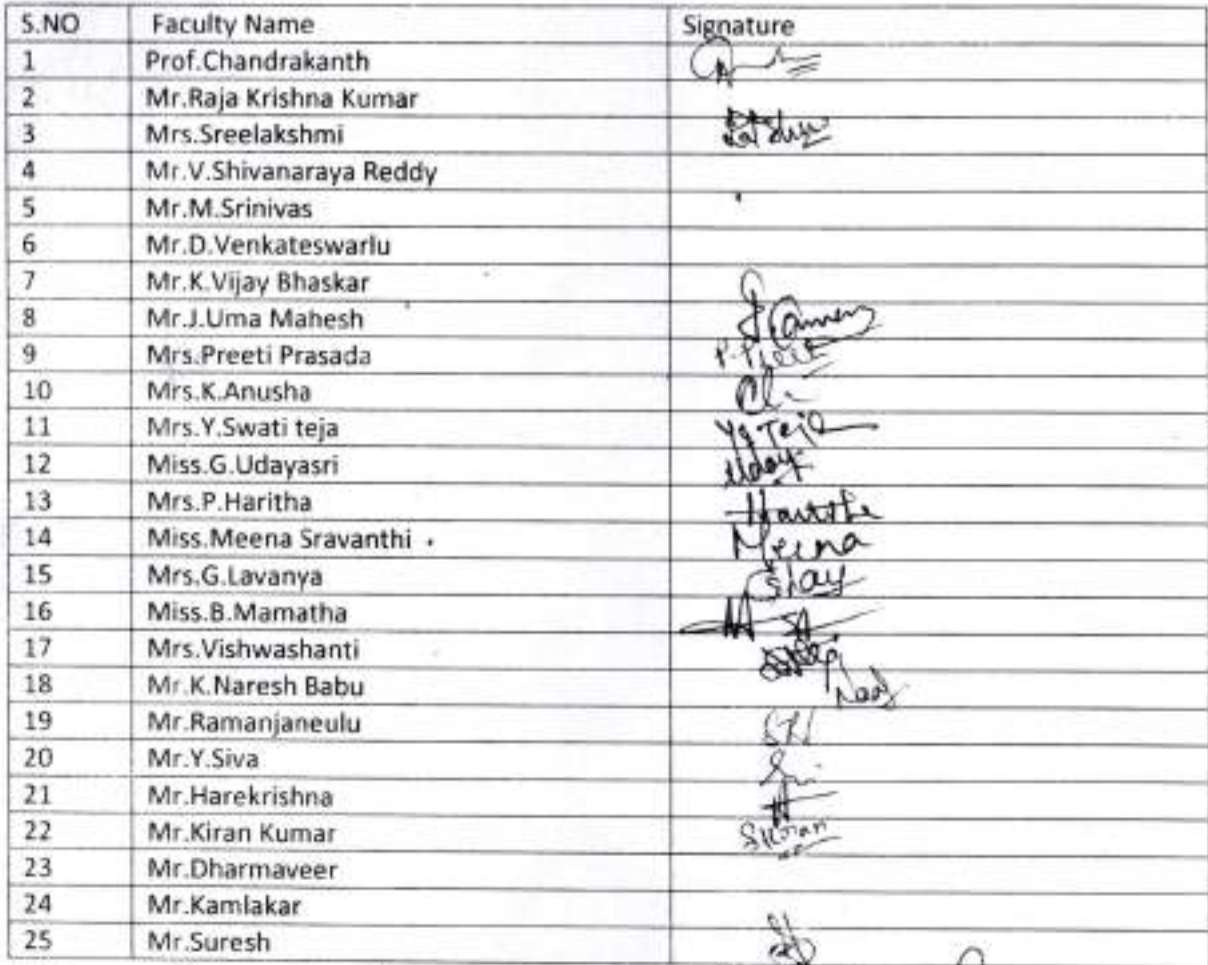 S.NO Faculty Name Signature
1 Prof.Chandrakanth
2 Mr.Raja Krishna Kumar
3 Mrs.Sreelakshmi
4 Mr.V.Shivanaraya Reddy
5 Mr.M.Srinivas
6 Mr.D.Venkateswarlu
7 Mr.K.Vijay Bhaskar
8 Mr.J.Uma Mahesh
9 Mrs.Preeti Prasada
10 Mrs.K.Anusha
11 Mrs.Y.Swati teja
12 Miss.G.Udayasri Uday
13 Mrs.P.Haritha Haritha
14 Miss.Meena Sravanthi Meena
15 Mrs.G.Lavanya
16 Miss.B.Mamatha
17 Mrs.Vishwashanti
18 Mr.K.Naresh Babu
19 Mr.Ramanjaneulu
20 Mr.Y.Siva
21 Mr.Harekrishna
22 Mr.Kiran Kumar
23 Mr.Dharmaveer
24 Mr.Kamlakar
25 Mr.Suresh